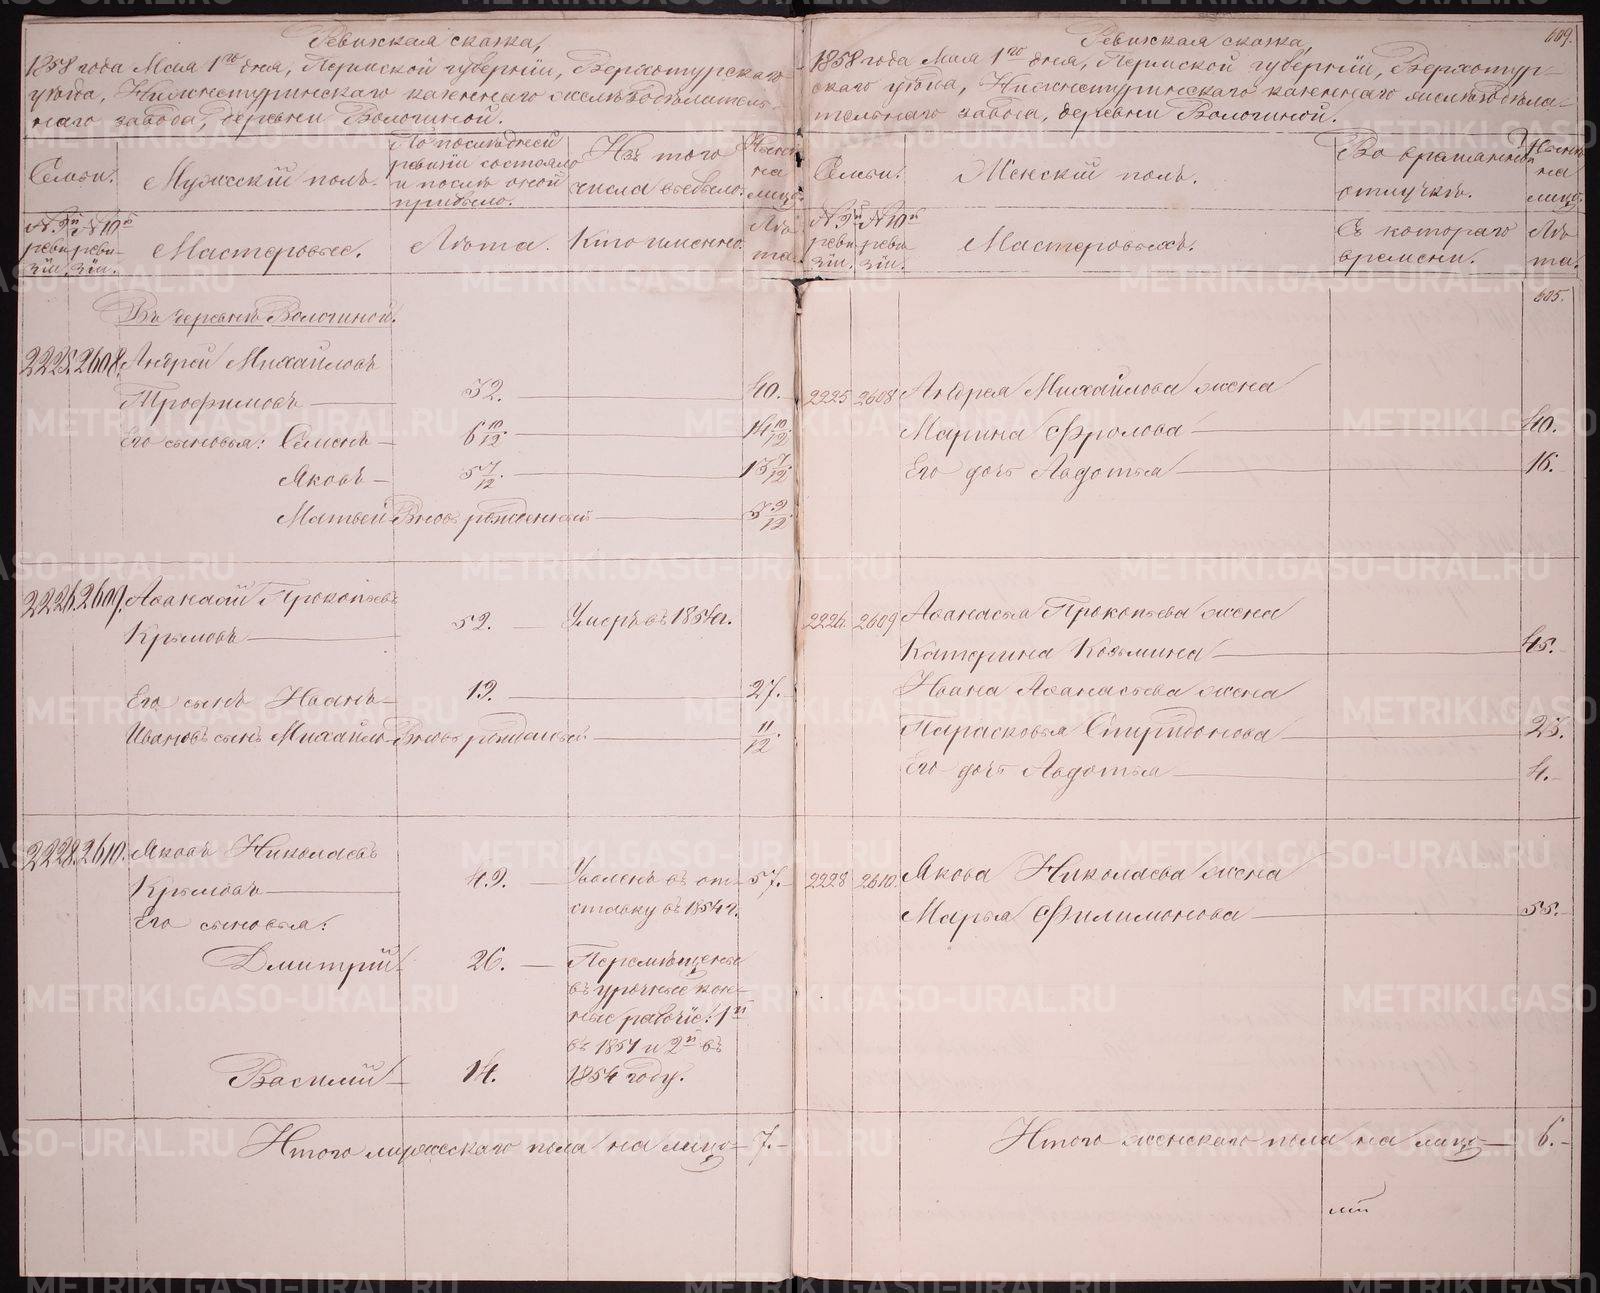 Ревижская сказка,
1858 года Мая 1го дня, Пермской губернiи, Верхотурскаго
уѣзда, Нижнетуринскаго казеннаго желѣзодѣлатель-
наго завода, деревни Вологиной.
Семьи.
Мужескiй полъ.
По последней
ревизiи состояло
и послѣ оной
прибыло.
Изъ того
числа выбыло.
Нынѣ
на
лицо.
№ 9й
реви
зiи.
№ 10й
реви-
зiи.
Мастеровые.
Лѣта.
Кто именно.
Лѣ
та.
Въ деревнѣ Вологиной.
2225. 2608. Андрей Михайловъ
Трофимовъ 32. 40.
Его сыновья: Семенъ 6 10/12. 14 10/12.
Яковъ 5 7/12. 13 7/12.
Матвей Вновь рожденный 5 2/12.
2226. 2609. Афанасiй Прокопьевъ
Крымовъ 52. Умеръ въ 1854г.
Его сынъ Иванъ 19. 27.
Ивановъ сынъ Михайло Вновь рожденный 11/12.
2228. 2610. Яковъ Николаевъ
Крымовъ 49. Уволенъ въ от- 57.
ставку въ 1854г.
Его сыновья:
Дмитрiй 26. Перемѣщены
въ урочные кон-
ные рабочiе: 1й
въ 1851 и 2й въ
Василiй 14. 1854 году.
Итого мужескаго пола на лицо 7.
609.
Ревижская сказка,
1858 года Мая 1го дня, Пермской губернiи, Верхотур-
скаго уѣзда, Нижнетуринскаго казеннаго желѣзодѣла-
тельнаго завода, деревни Вологиной.
Семьи.
Женскiй полъ.
Во временной
отлучкѣ.
Нынѣ
на
лицо.
№ 9й
реви
зiи.
№ 10й
реви
зiи.
Мастеровыхъ.
Съ котораго
времени.
Лѣ
та.
605.
2225 2608 Андрея Михайлова жена
Марина Фролова 40.
Его дочь Авдотья 16.
2226 2609 Афанасья Прокопьева жена
Катерина Козьмина 45.
Ивана Афанасьева жена
Парасковья Спиридонова 25.
Его дочь Авдотья 4.
2228 2610. Якова Николаева жена
Марья Филимонова 55.
Итого женскаго пола на лицо 6.
METRIKI.GASO-URAL.RU